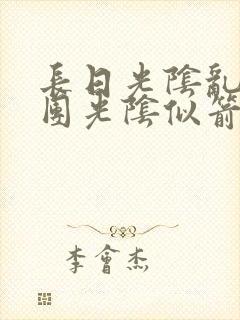 長日光陰亂
團光陰似箭
李會杰